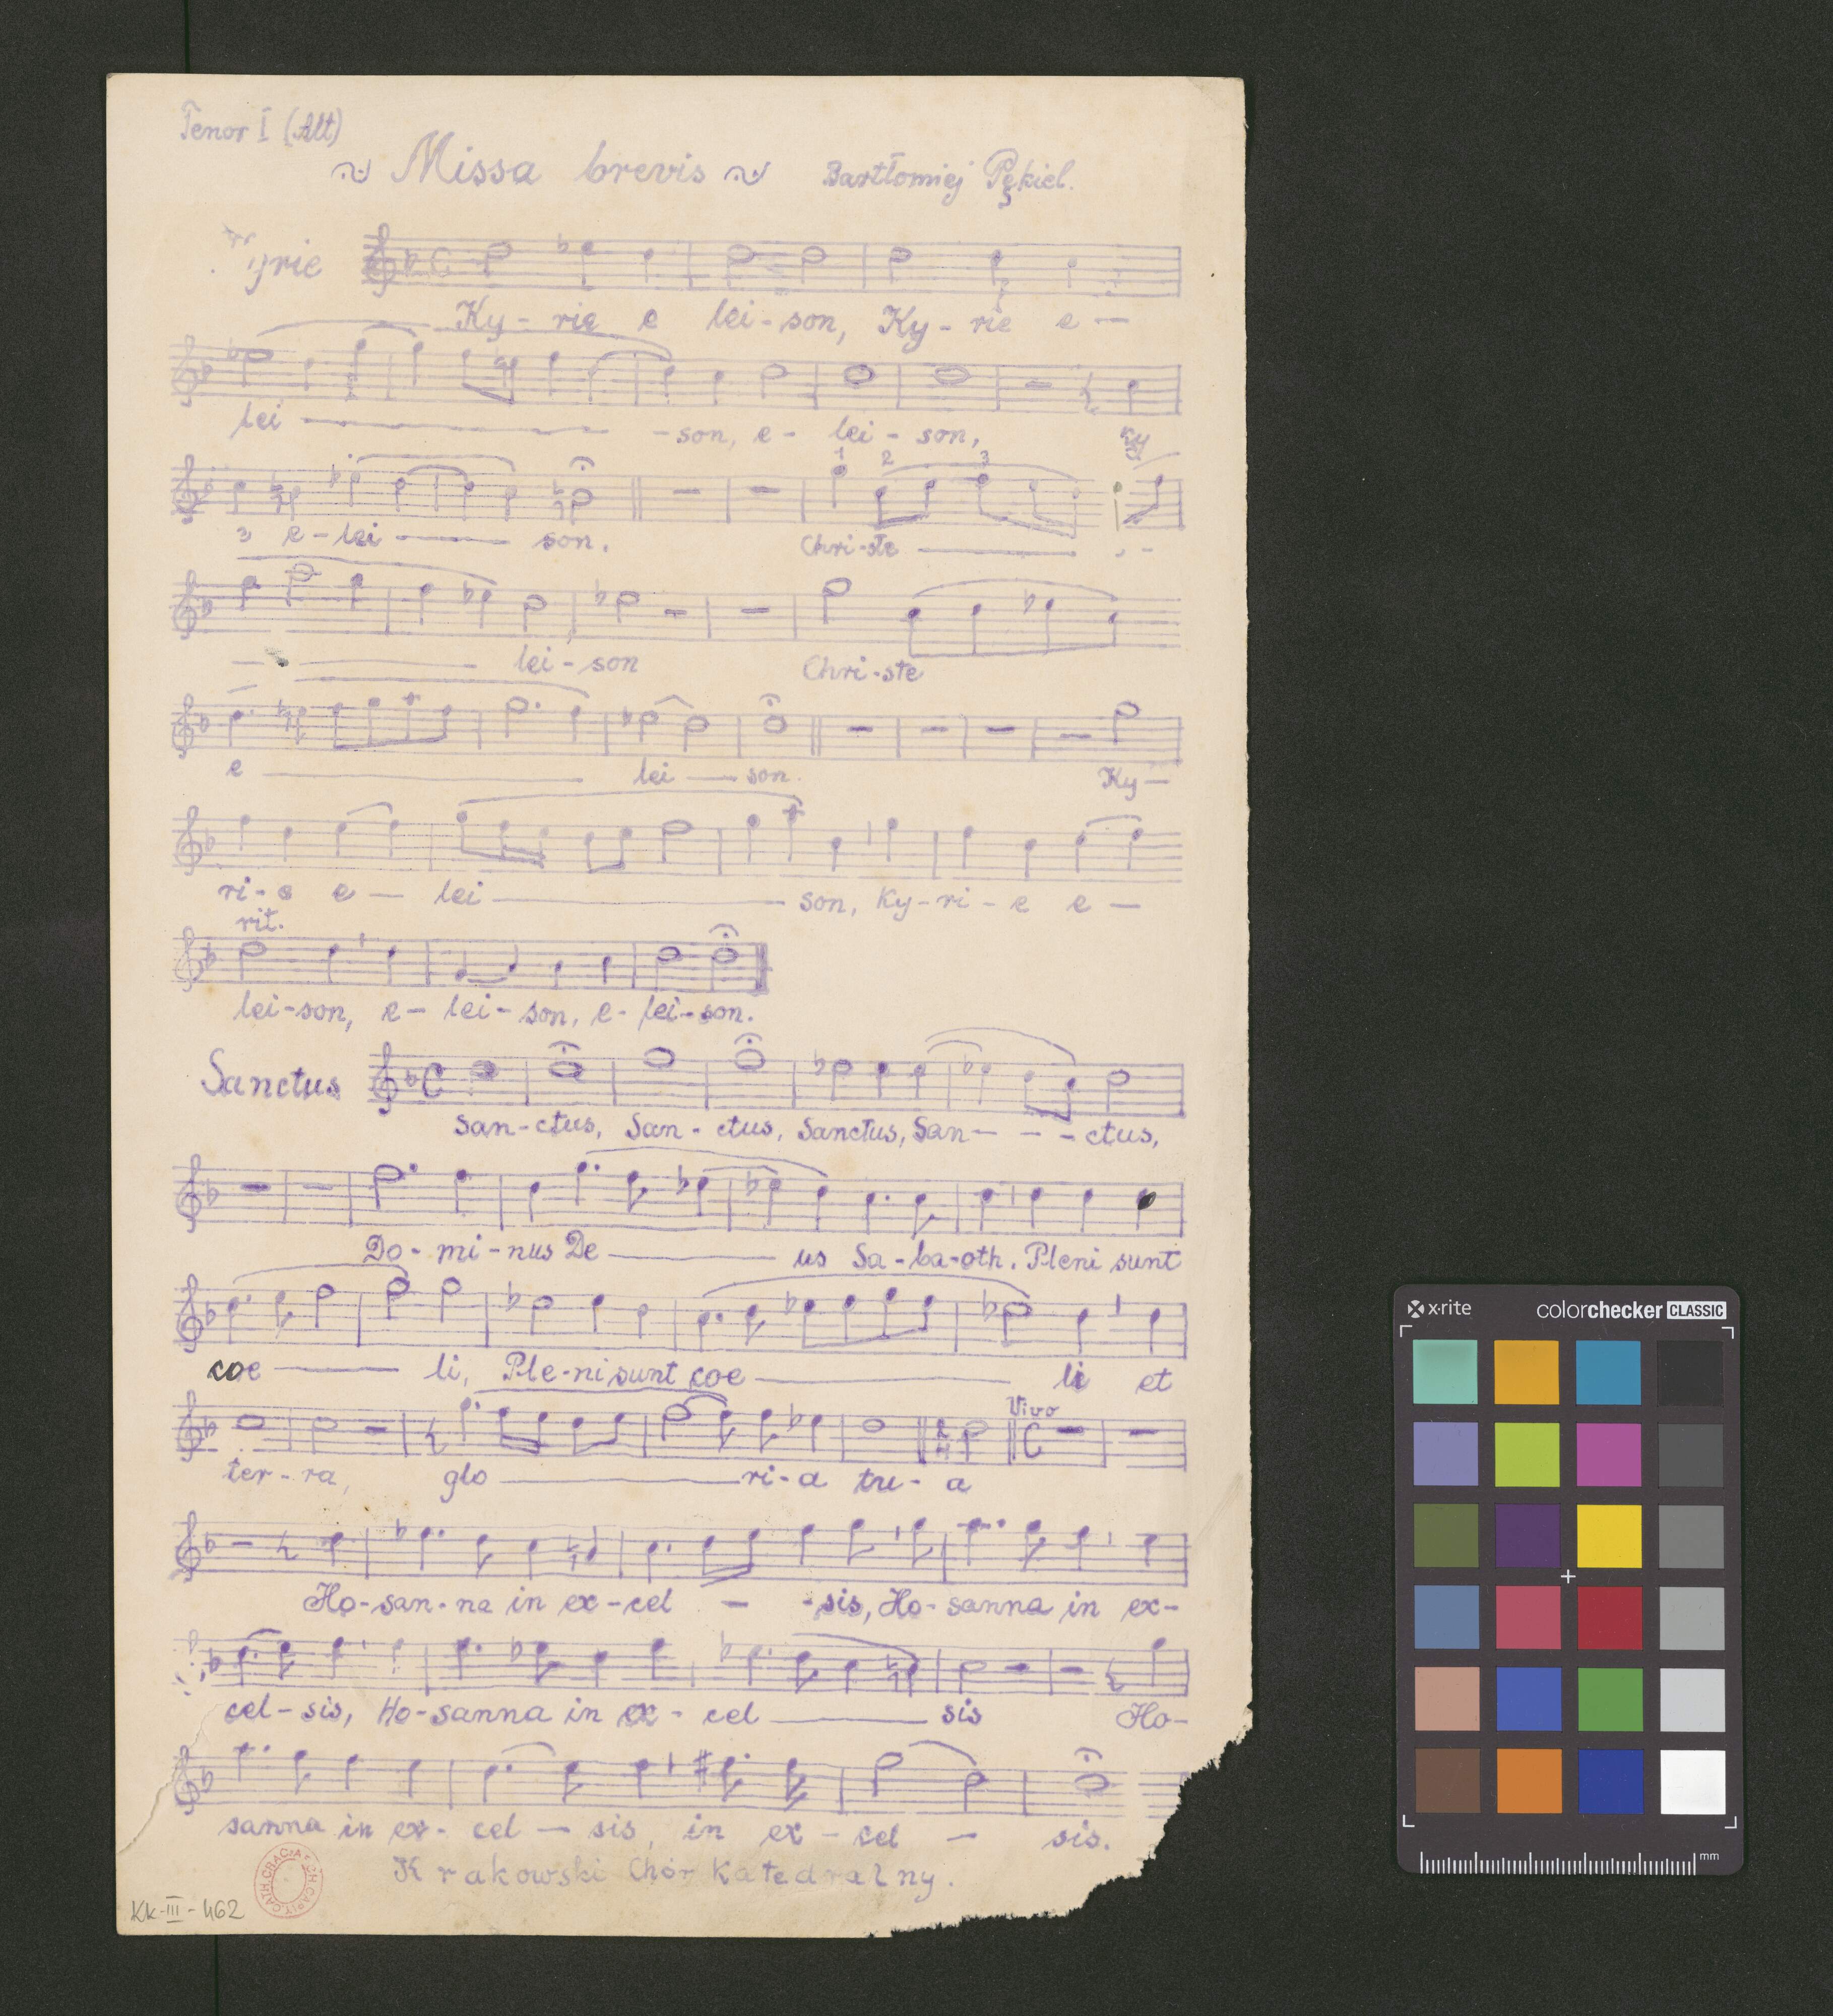 Tenor I (Alt)
Missa brevis Bartłomiej Pękiel.
yrie
Ky - rie e lei - son, Ky - rie e —
lei — - son, e - lei - son, Ky
e - lei — son. Chri - ste —
1 2 3
— lei - son Chri - ste
e — lei — son. Ky —
ri - e e — lei — son, Ky - ri - e e —
rit.
lei - son, e - lei - son, e - lei - son.
Sanctus
San - ctus, San - ctus, Sanctus, San - - - ctus,
Do - mi - nus De — us Sa - ba - oth. Pleni sunt
coe — li, Ple - ni sunt coe — li et
Vivo
ter - ra, glo — ri - a tu - a
Ho - san - na in ex - cel — - sis, Ho - sanna in ex -
cel - sis, Ho - sanna in ex - cel — sis Ho -
sanna in ex - cel — sis, in ex - cel — sis.
Krakowski Chór Katedralny.
KK-III-462
x·rite colorchecker CLASSIC
mm